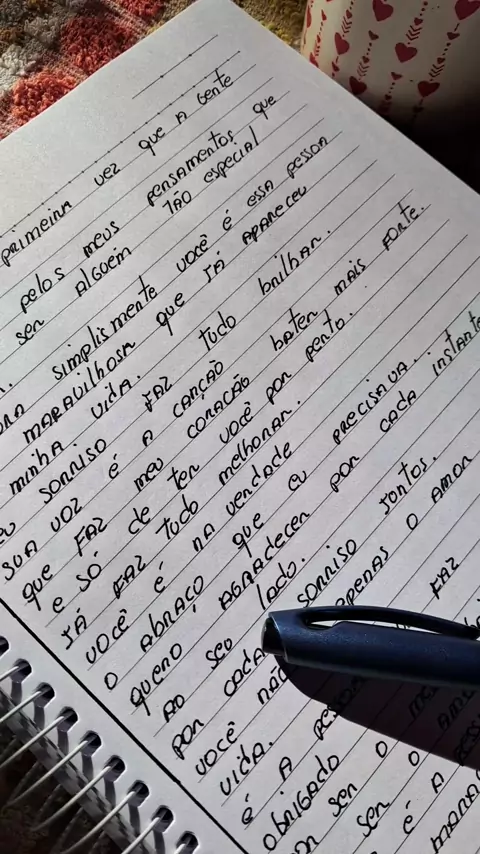 primeira vez que a gente
pelos meus pensamentos que
ser alguém tão especial
simplismente você é essa pessoa
maravilhosa que já apareceu
minha vida.
sorriso faz tudo brilhar.
sua voz é a canção
que faz meu coração bater mais forte.
e só de ter você por perto.
já faz tudo melhorar.
você é na verdade
o abraço que eu precisava.
quero agradecer por cada instante
ao seu lado.
por cada sorriso juntos.
você apenas o amor
vida.
é a faz
obrigado o
ser o
é a